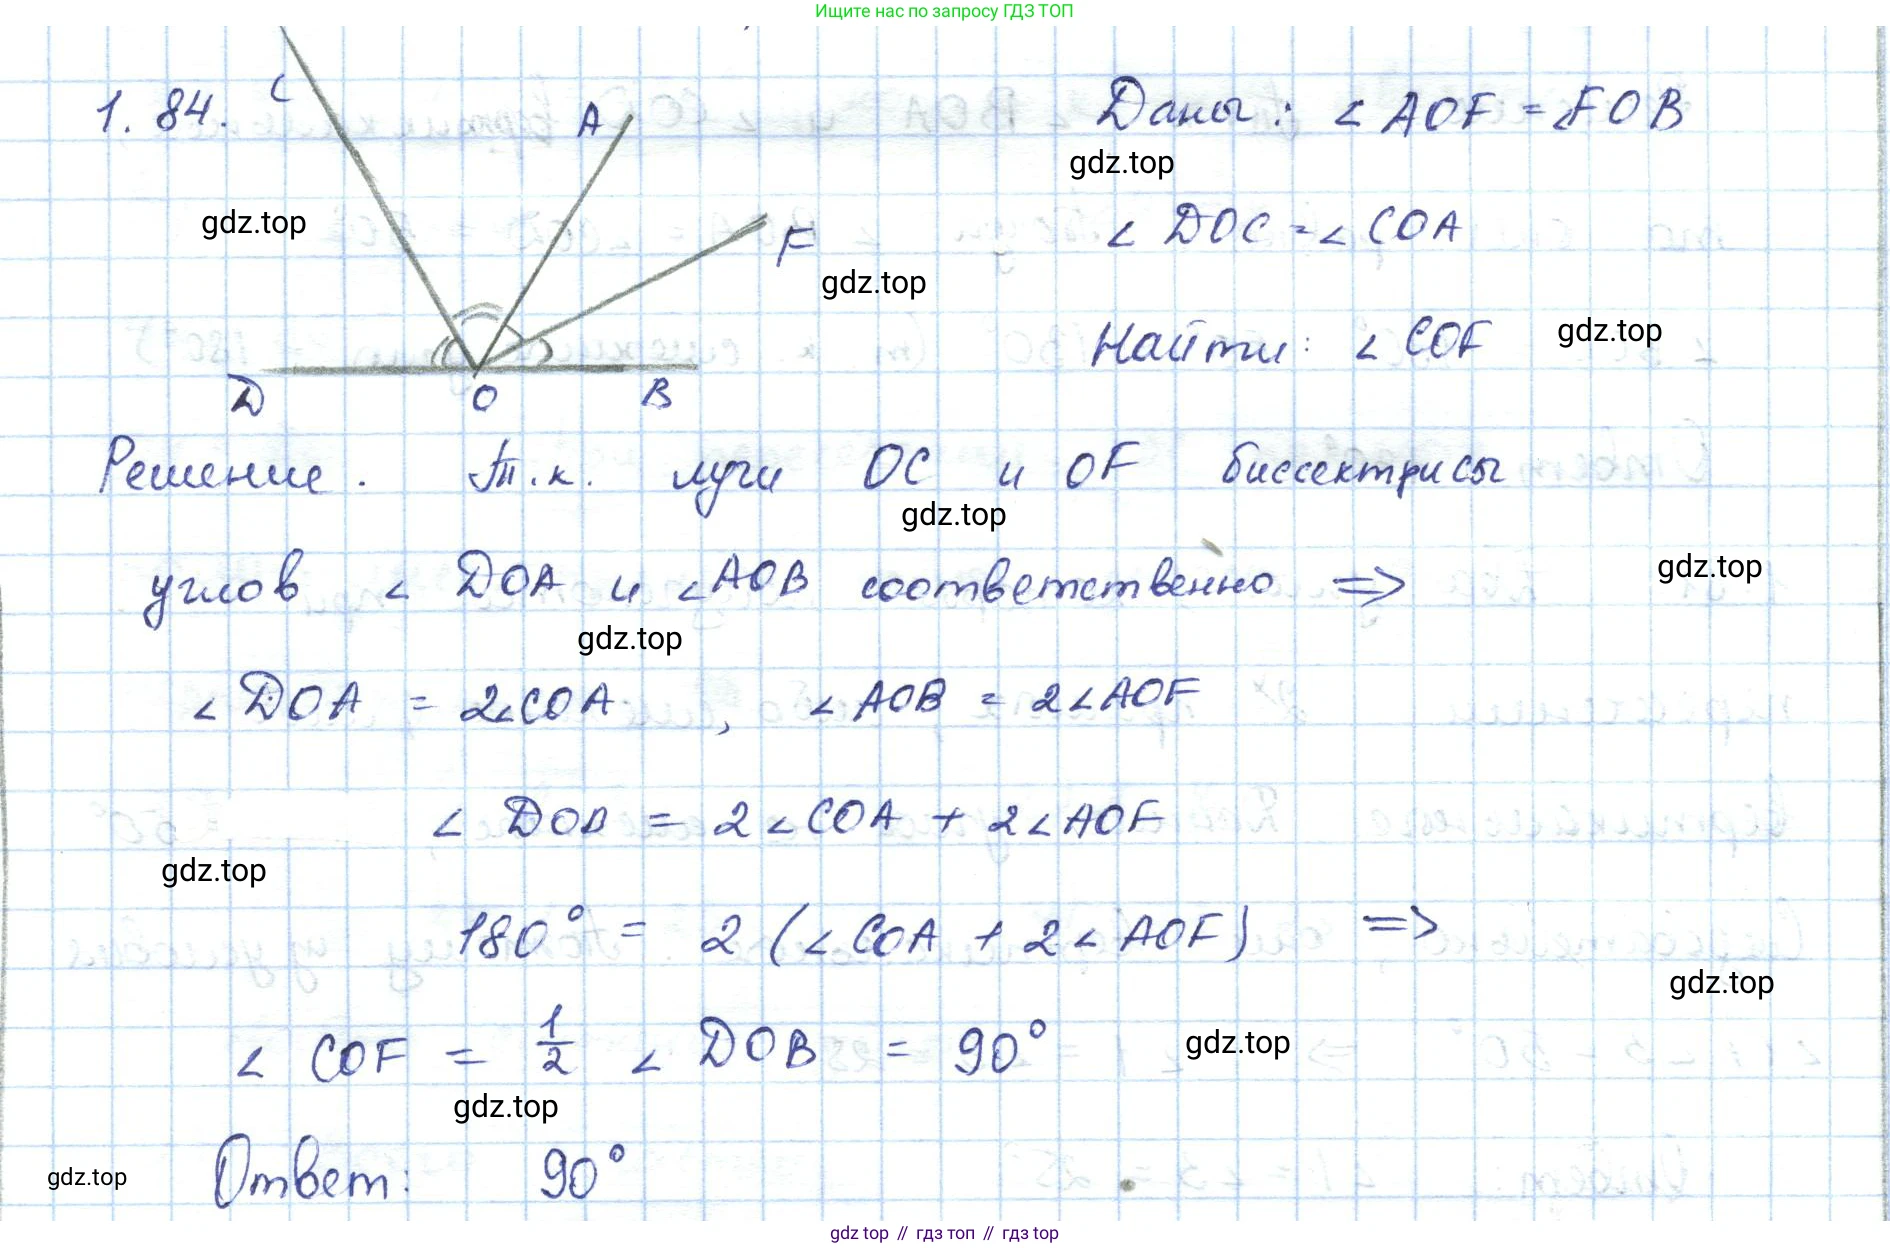 Ищите нас по запросу ГДЗ ТОП
1.84.
C
A
F
D
O
B
Даны: ∠ AOF = ∠FOB
gdz.top
gdz.top
∠ DOC = ∠ COA
gdz.top
Найти: ∠ COF
gdz.top
Решение. Т.к. лучи OC и OF биссектрисы
gdz.top
углов ∠ DOA и ∠AOB соответственно =>
gdz.top
gdz.top
∠ DOA = 2∠COA, ∠ AOB = 2∠AOF
∠ DOB = 2∠COA + 2∠AOF
gdz.top
180° = 2 (∠COA + 2∠AOF) =>
gdz.top
∠ COF = 1/2 ∠ DOB = 90°
gdz.top
gdz.top
Ответ: 90°
gdz.top
gdz top // гдз топ // gdz top